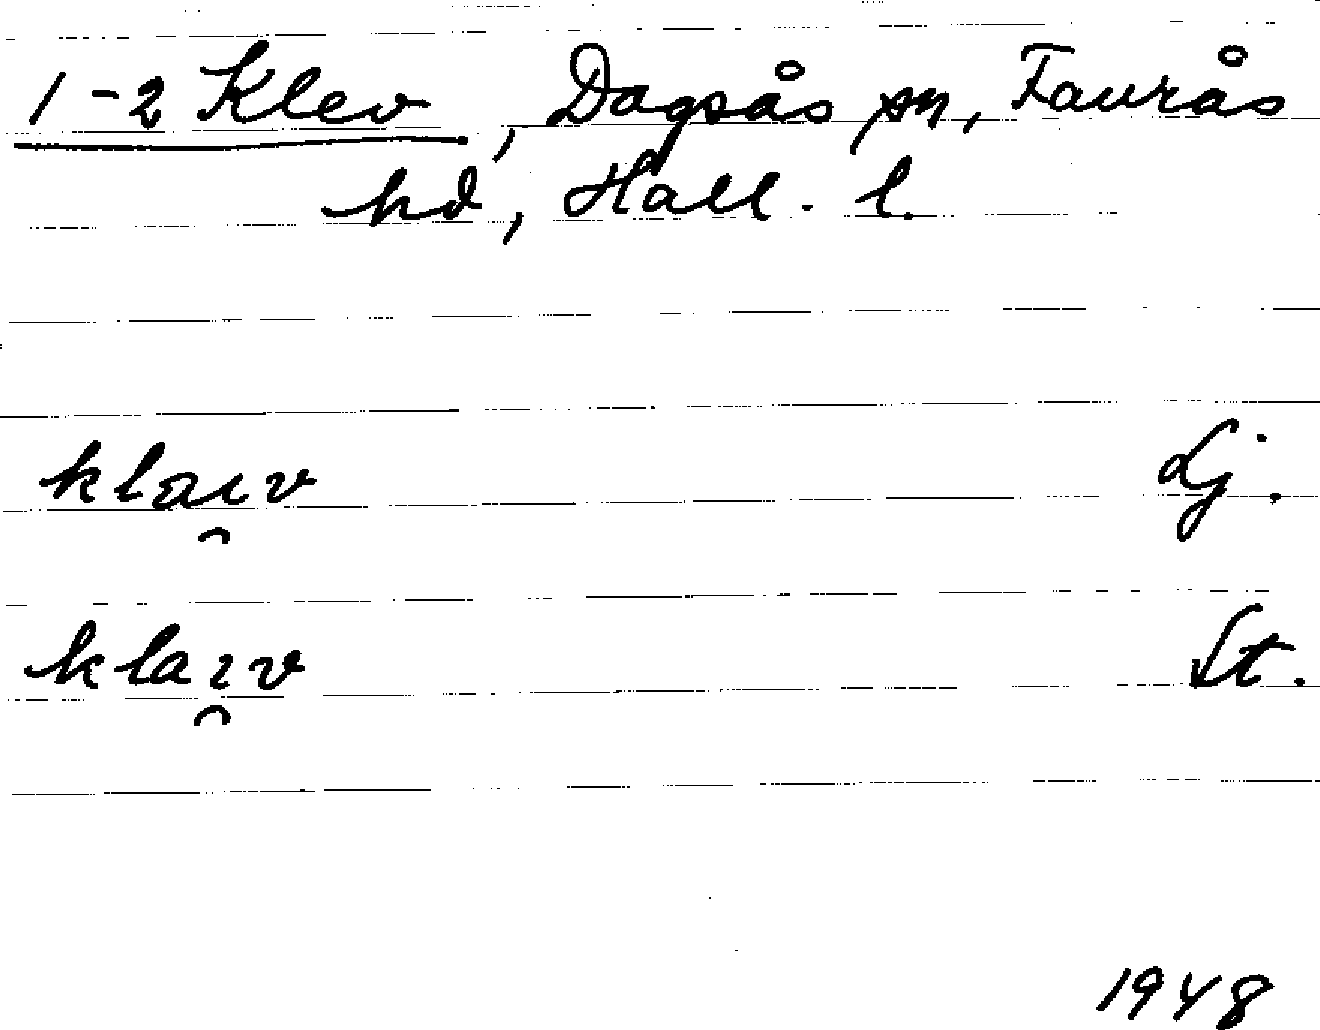 1-2 Klev, Dagsås sn, Faurås
hd, Hall. l.
klaɪ̯v Lj.
klaɪ̯v St.
1948